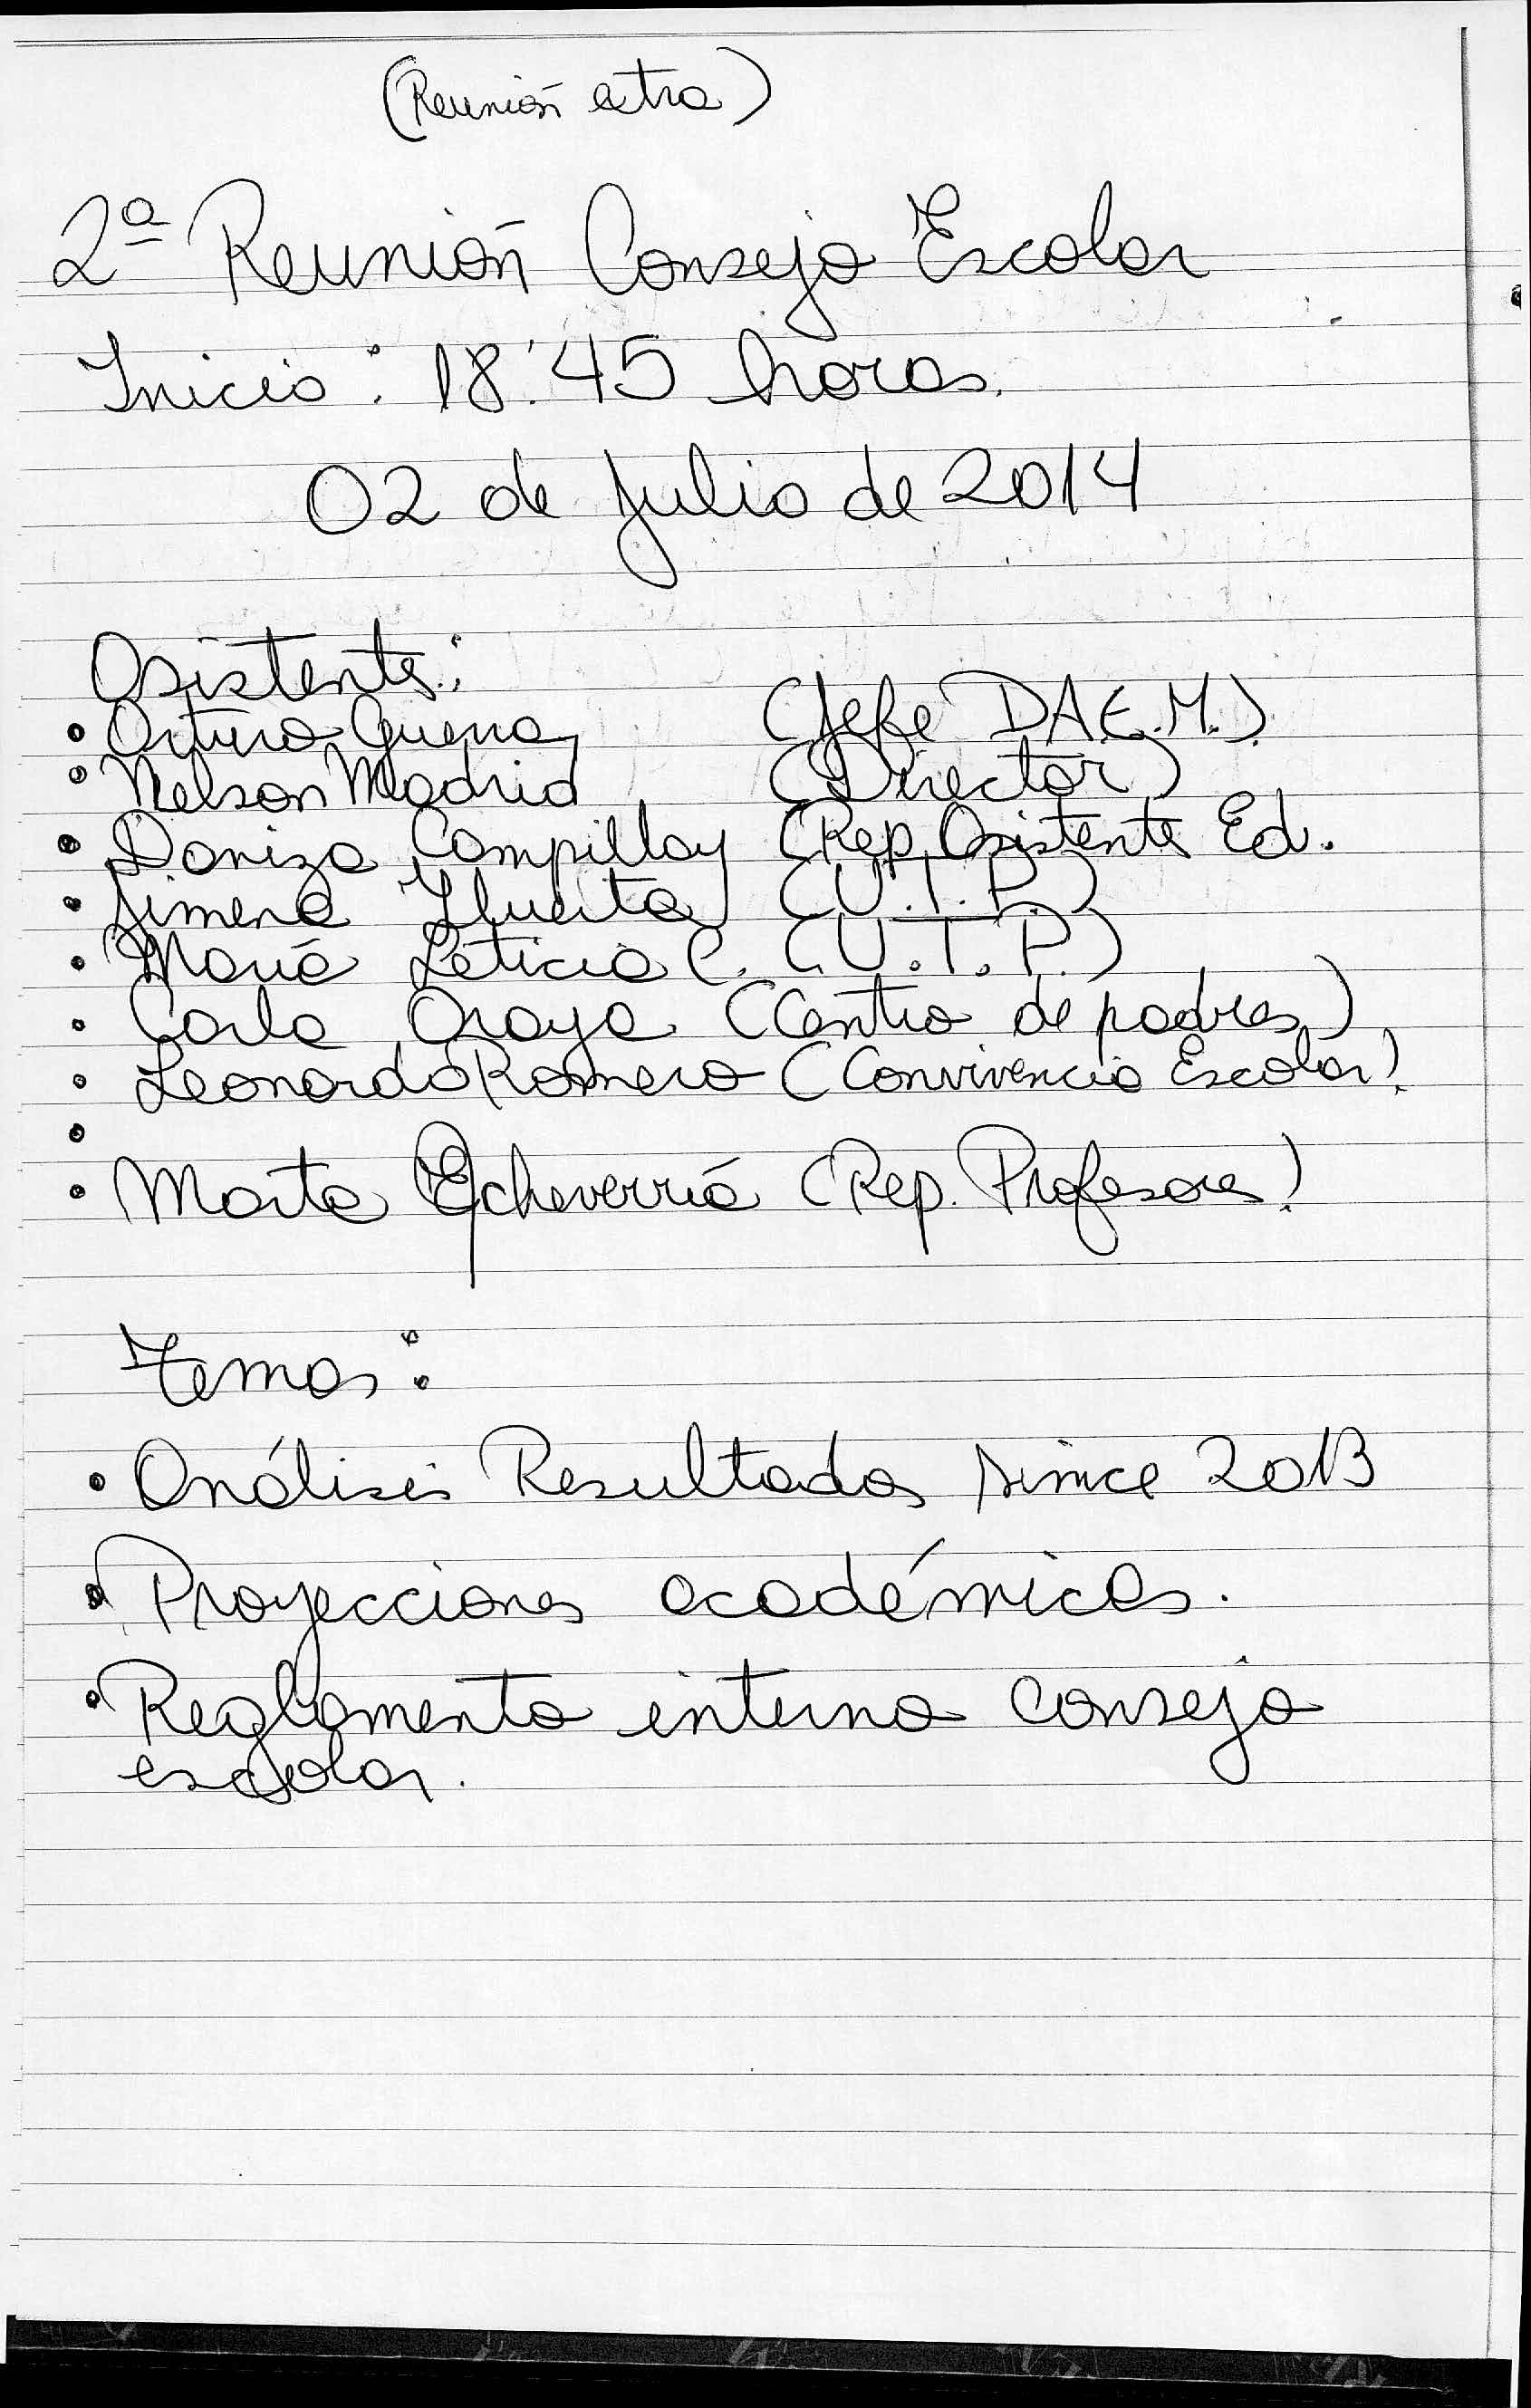 (Reunión extra)
2ª Reunión Consejo Escolar
Inicio: 18:45 horas.
02 de Julio de 2014
Asistentes:
• Arturo Guerra (Jefe D.A.E.M.)
• Nelson Madrid (Director)
• Daniza Campillay (Rep. Asistentes Ed.
• Jimena Huerta (U.T.P.)
• María Leticia C. (U.T.P.)
• Carla Araya (Centro de padres)
• Leonardo Romero (Convivencia Escolar)
•
• Marta Echeverría (Rep. Profesores)
Temas:
• Análisis Resultados simce 2013
• Proyecciones académicas.
• Reglamento interno consejo
escolar.